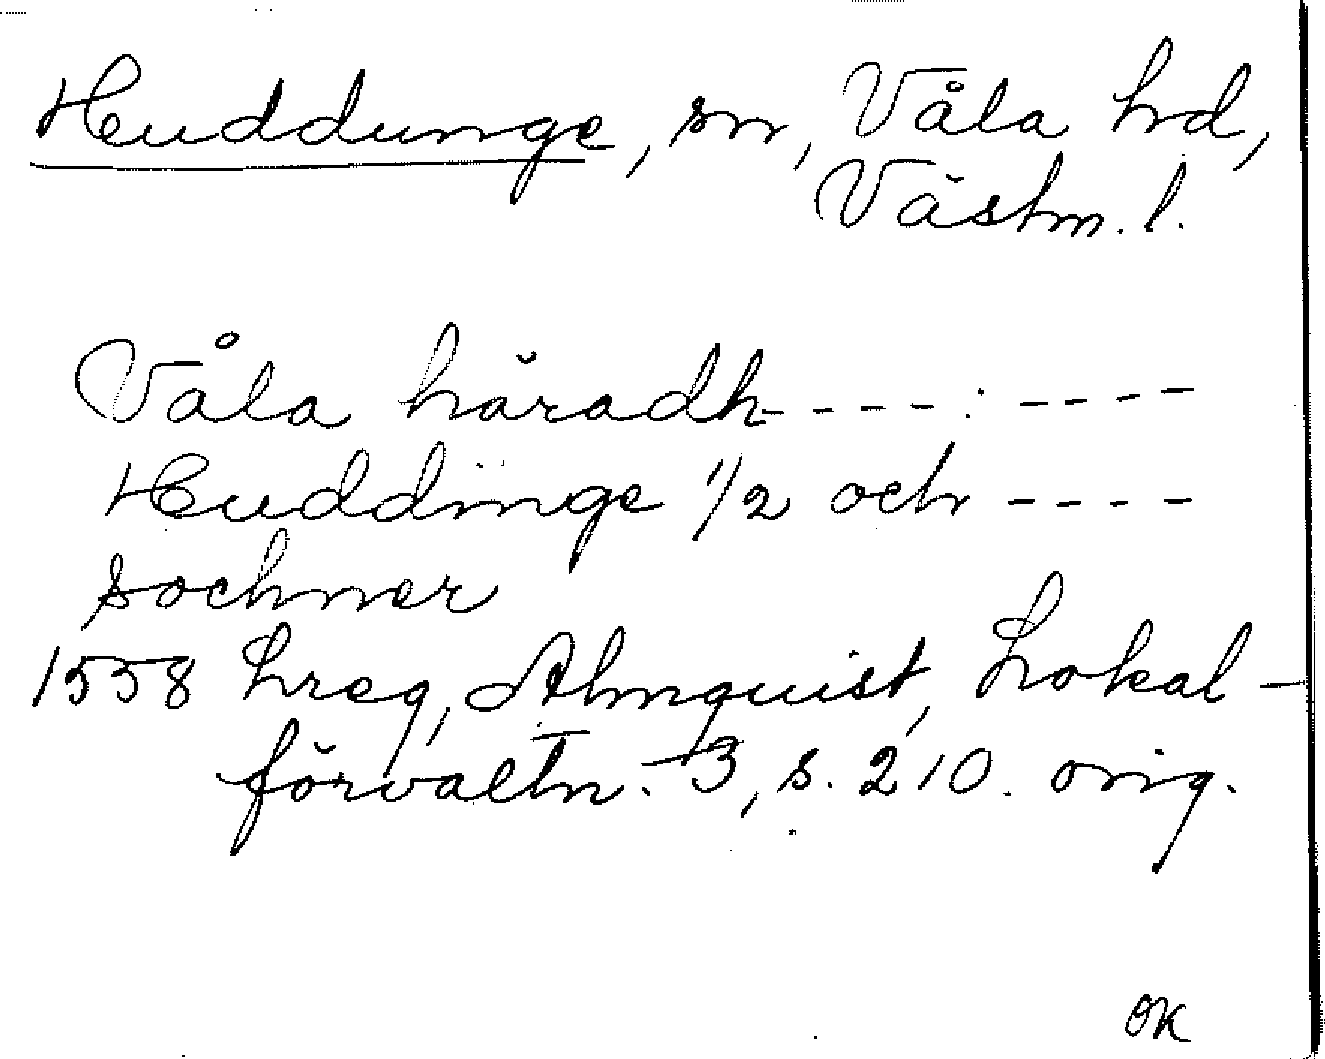 Huddunge, sn, Våla hd,
Västm. l.
Våla häradh - - - - : - - - -
Huddinge 1/2 och - - - -
sochner
1558 Lreg, Almquist, Lokal-
förvaltn. 3, s. 210. orig.
OK